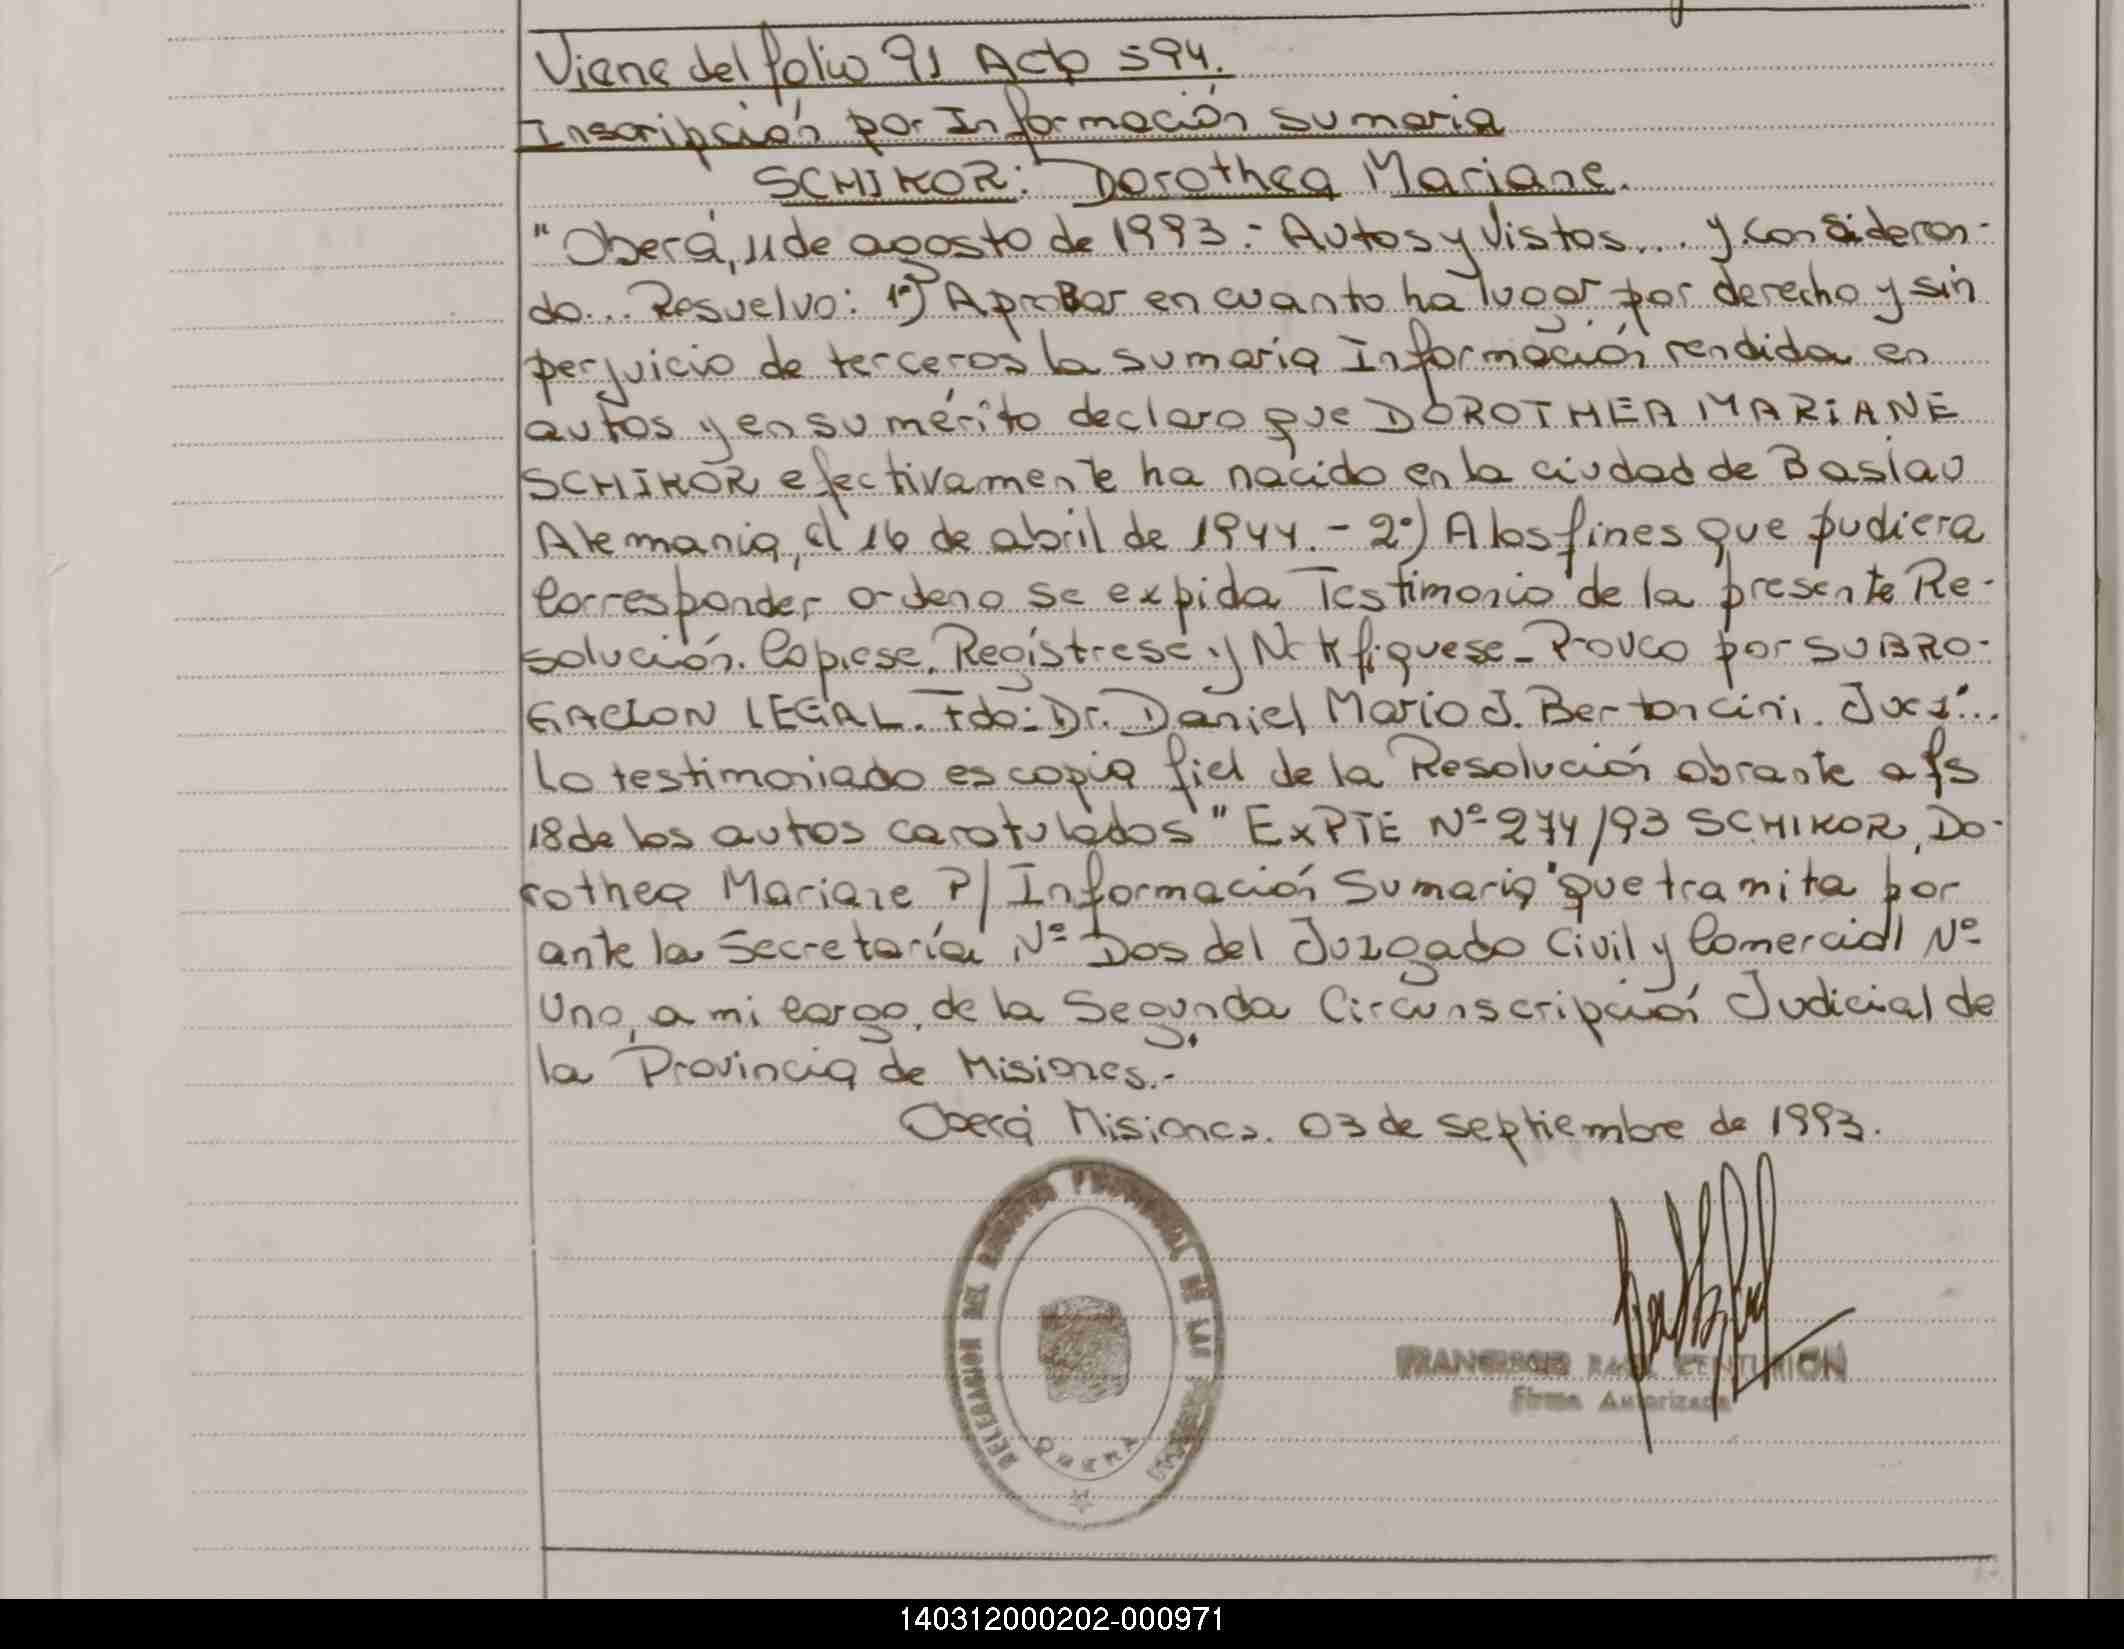 Viene del folio 91 Acta 594.
Inscripción por Información sumaria
SCHIKOR: Dorothea Mariane.
"Oberá, 11 de agosto de 1993.- Autos y Vistos.... y consideran-
do... Resuelvo: 1º) Aprobar en cuanto ha lugar por derecho y sin
perjuicio de terceros la sumaria Información rendida en
autos y en su mérito declaro que DOROTHEA MARIANE
SCHIKOR efectivamente ha nacido en la ciudad de Baslau
Alemania, el 16 de abril de 1944.- 2º) A los fines que pudiera
corresponder, ordeno se expida Testimonio de la presente Re-
solución. Cópiese, Regístrese y Notifíquese - Proveo por SUBRO-
GACION LEGAL. Fdo: Dr. Daniel Mario J. Bertoncini. Juez"...
Lo testimoniado es copia fiel de la Resolución obrante a fs
18 de los autos caratulados "EXPTE Nº 274/93 SCHIKOR, Do-
rothea Mariane P/ Información Sumaria" que tramita por
ante la Secretaría Nº Dos del Juzgado Civil y Comercial Nº
Uno, a mi cargo, de la Segunda Circunscripción Judicial de
la Provincia de Misiones.-
Oberá Misiones. 03 de septiembre de 1993.
DELEGACION DEL REGISTRO PROVINCIAL DE LAS PERSONAS
OBERA
FRANCISCO RAUL CENTURION
Firma Autorizada
140312000202-000971